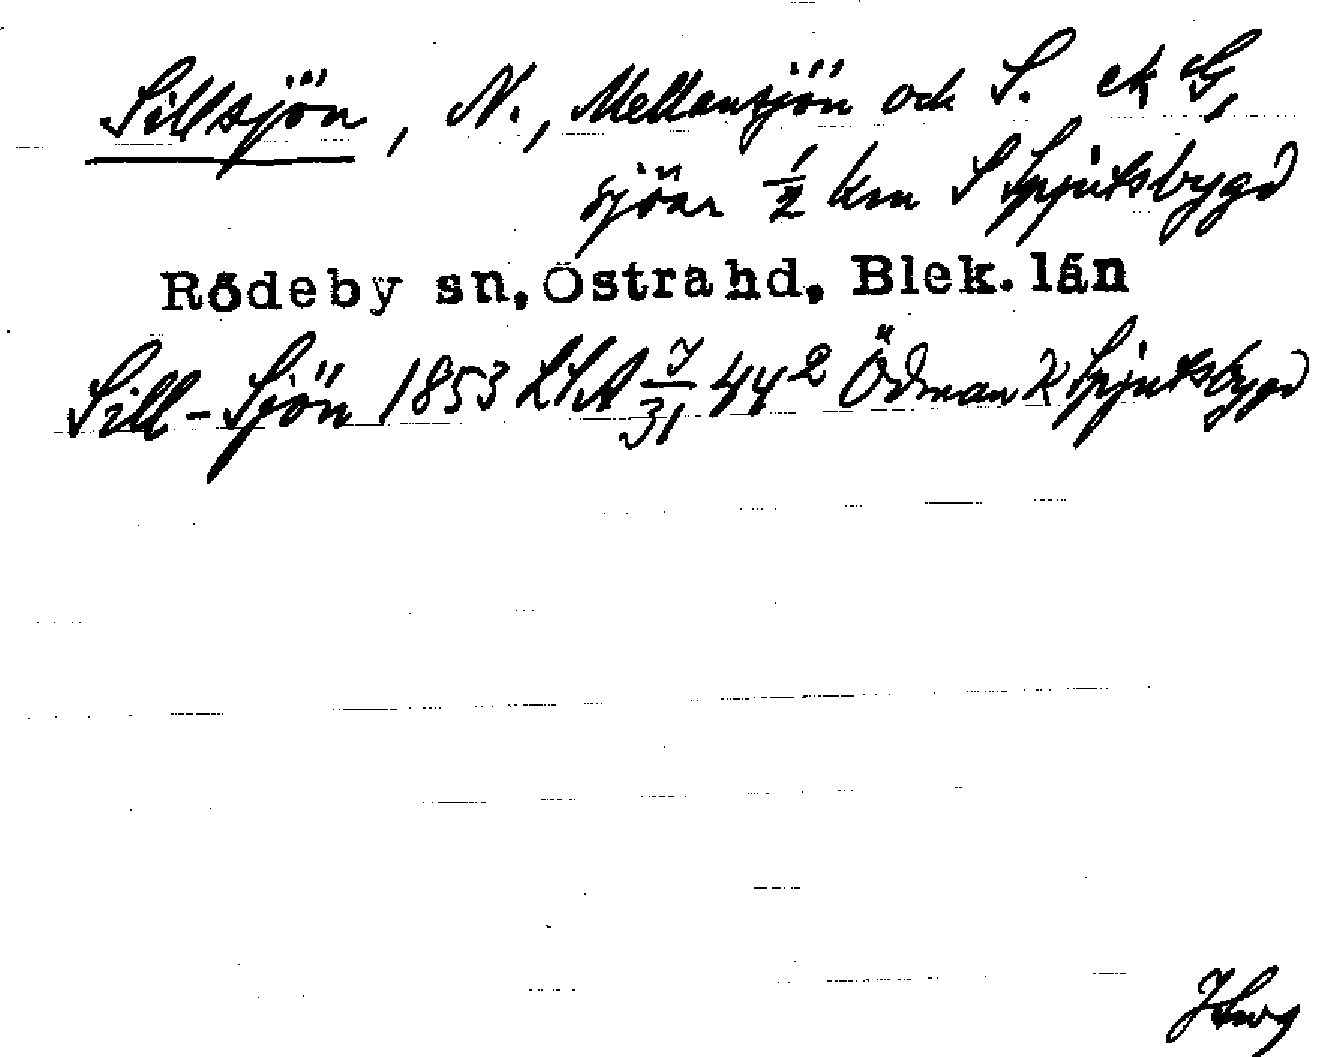 Sillsjön, N., Mellansjön och S. ek G,
sjöar ½ km S Spjutsbygd
Rödeby sn, Östra hd, Blek. län
Sill-Sjön 1853 LSA 7/31 44² Ödman k Spjutsbygd